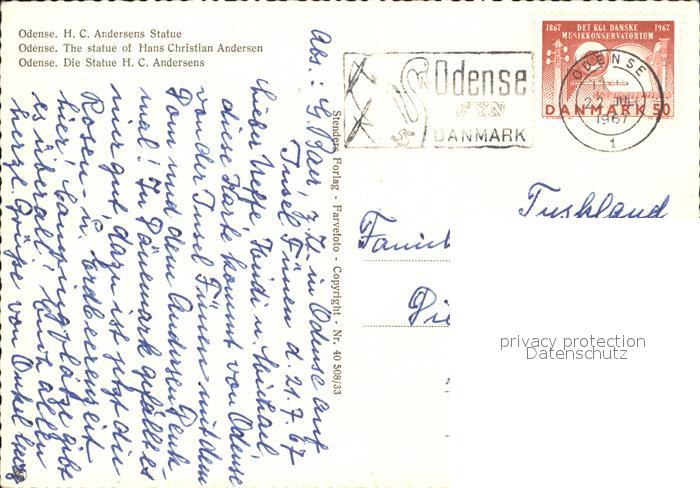 Odense. H. C. Andersens Statue
Odense. The statue of Hans Christian Andersen
Odense. Die Statue H. C. Andersens
1867 DET KGL DANSKE 1967
MUSIKKONSERVATORIUM
DANMARK 50
ODENSE
22 JUL
1967
1
Odense
FYN
DANMARK
Abs.: G. Baer z. Z. in Odense auf
Insel Fünen d. 21.7.67
Liebe Helga, Heidi u. Michael,
diese Karte kommt von Odense
von der Insel Fünen mit dem
Dom und dem Andersen Denk
mal! In Dänemark gefällt es
mir gut, dazu ist jetzt die
Rosen- u. Erdbeerenzeit
hier! Campingplätze gibt
es überall! Euch allen
herzl. Grüße von Onkel
Stenders Forlag - Farvefoto - Copyright. Nr. 40 508/33
Famil
Die
privacy protection
Datenschutz